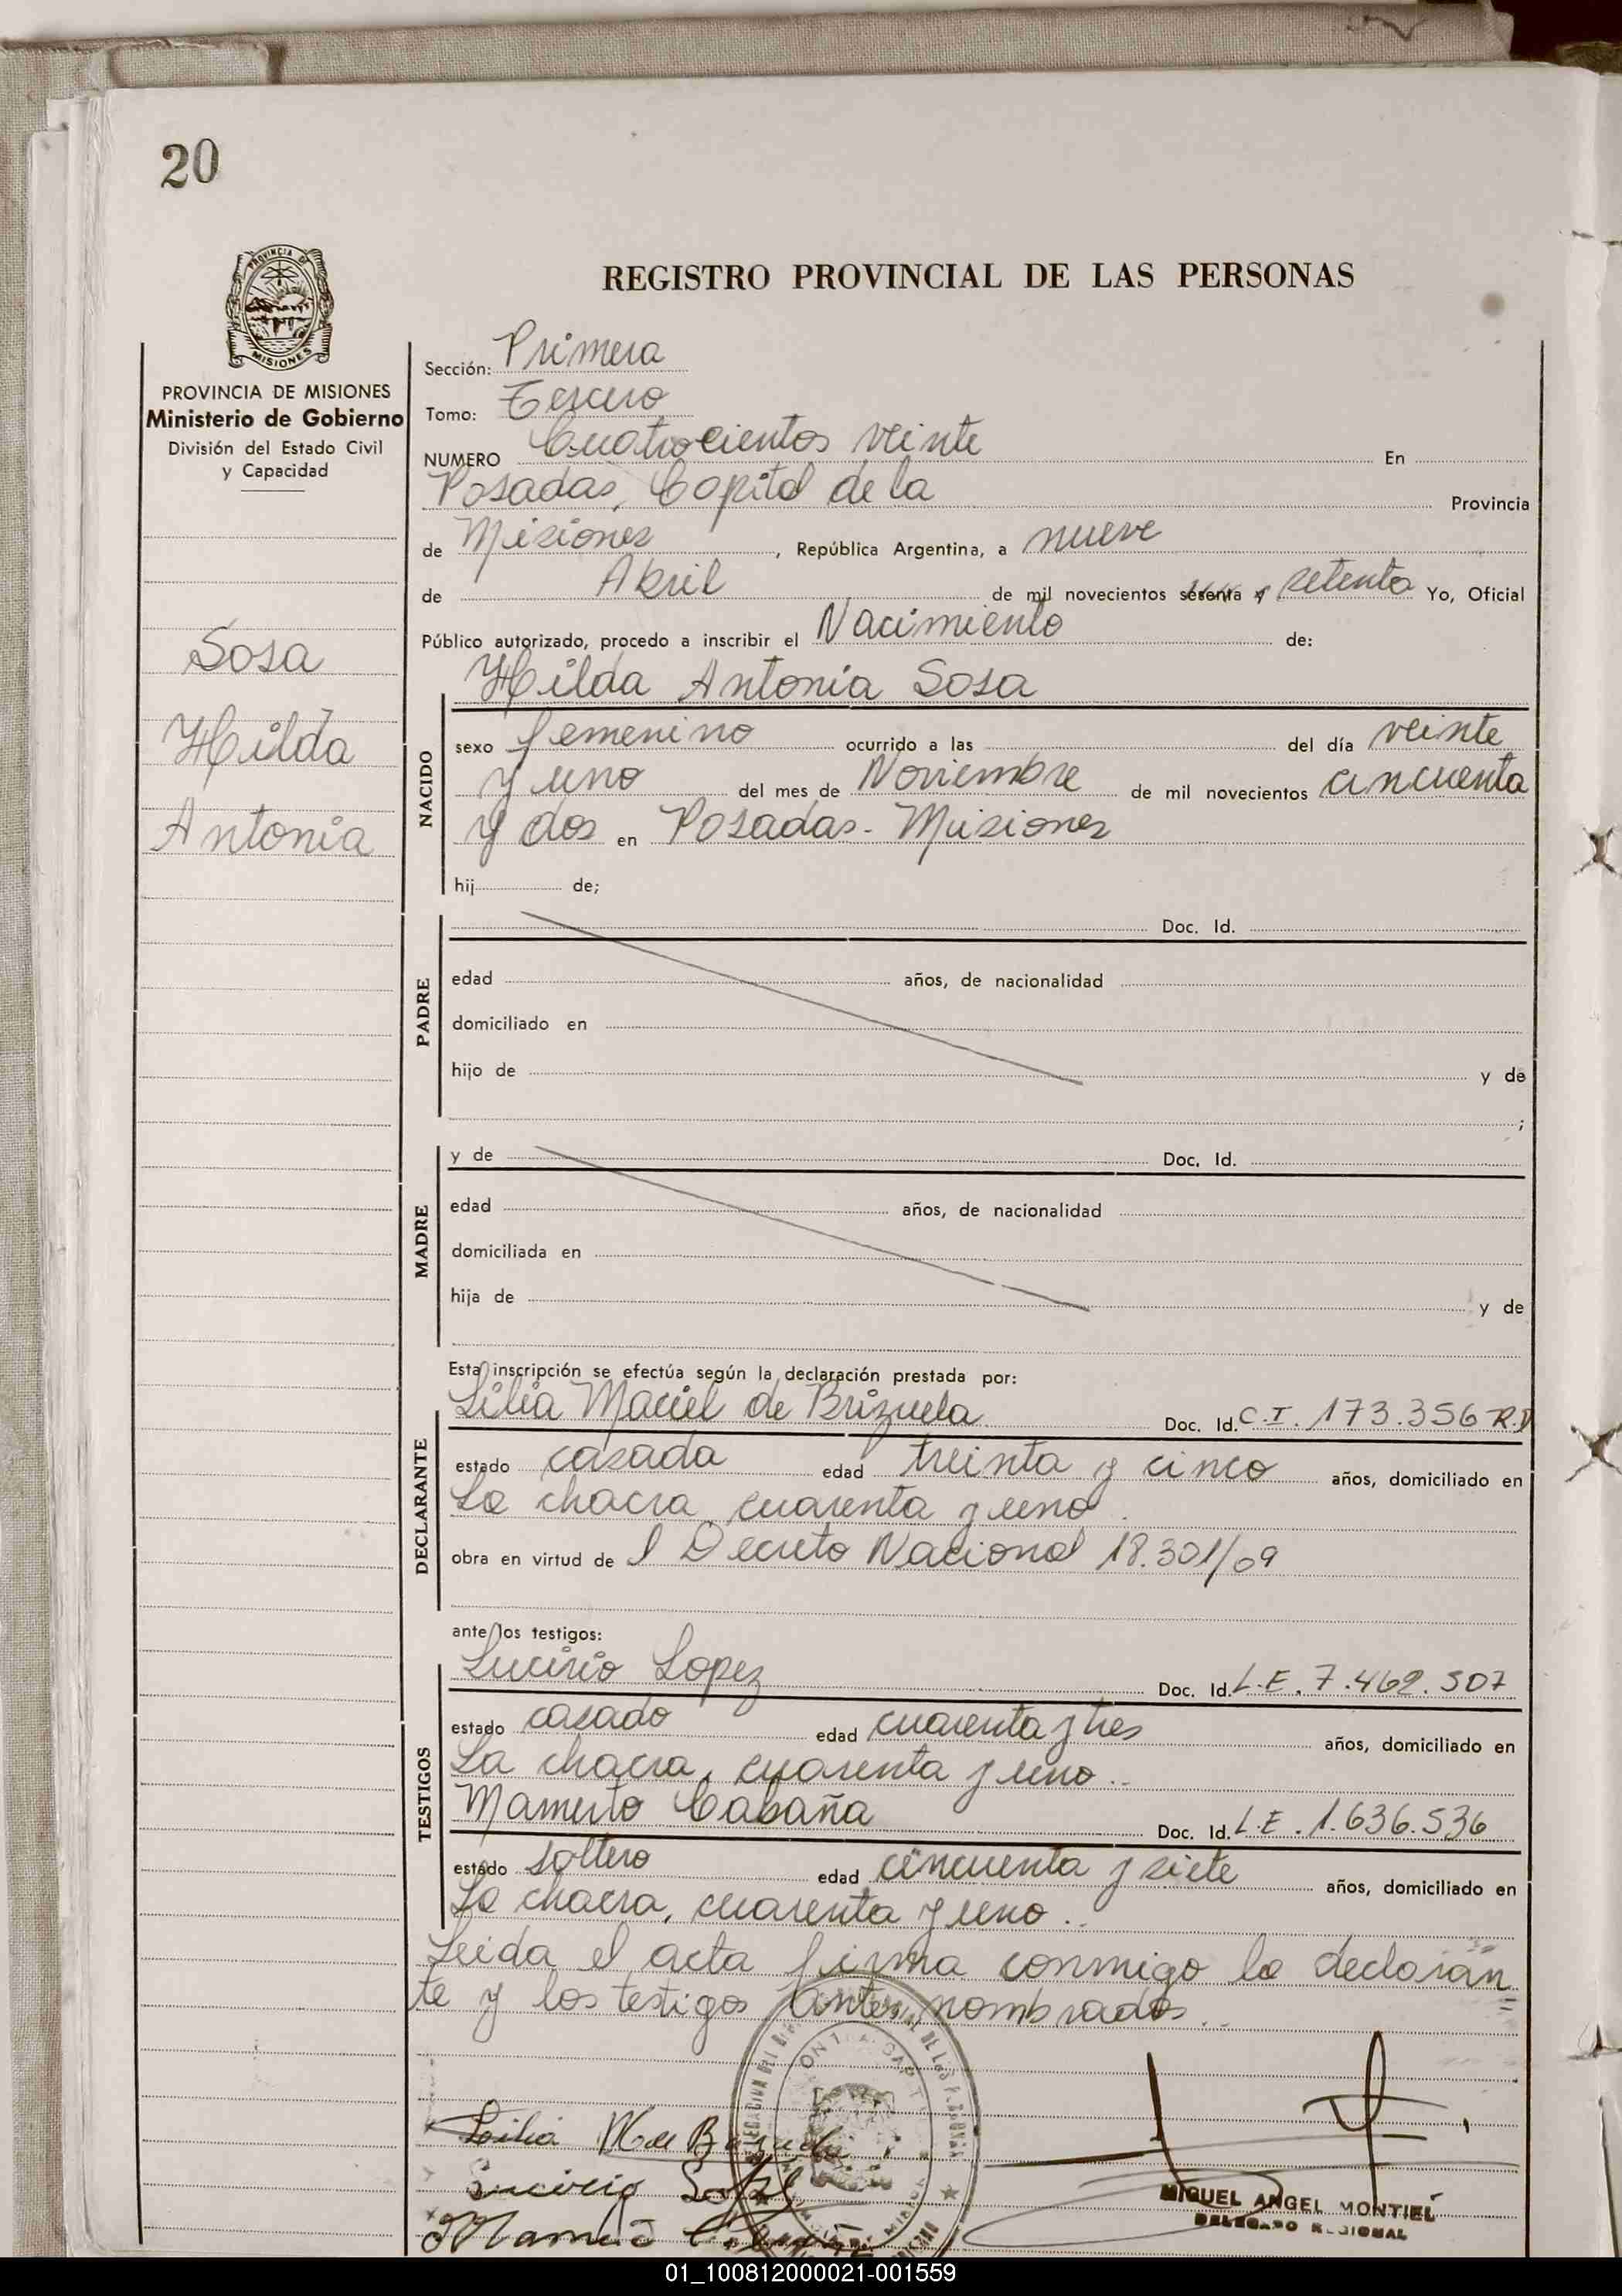 20
PROVINCIA DE
MISIONES
REGISTRO PROVINCIAL DE LAS PERSONAS
PROVINCIA DE MISIONES
Ministerio de Gobierno
División del Estado Civil
y Capacidad
Sosa
Hilda
Antonia
Sección: Primera
Tomo: Tercero
NUMERO Cuatrocientos veinte En
Posadas, Capital de la Provincia
de Misiones, República Argentina, a nueve
de Abril de mil novecientos sesenta y setenta Yo, Oficial
Público autorizado, procedo a inscribir el Nacimiento de:
Hilda Antonia Sosa
NACIDO
sexo femenino ocurrido a las del día veinte
y uno del mes de Noviembre de mil novecientos cincuenta
y dos en Posadas - Misiones
hij de;
PADRE
Doc. Id.
edad años, de nacionalidad
domiciliado en
hijo de y de
;
MADRE
y de Doc. Id.
edad años, de nacionalidad
domiciliada en
hija de y de
Esta inscripción se efectúa según la declaración prestada por:
DECLARANTE
Lilia Maciel de Brizuela Doc. Id. C.I. 173.356 R.P
estado casada edad treinta y cinco años, domiciliado en
La chacra cuarenta y uno.
obra en virtud de l Decreto Nacional 18.301/69
ante los testigos:
TESTIGOS
Lucirio Lopez Doc. Id. L.E. 7.462.507
estado casado edad cuarenta y tres años, domiciliado en
La chacra, cuarenta y uno..
Mamerto Cabaña Doc. Id. L.E. 1.636.536
estado soltero edad cincuenta y siete años, domiciliado en
La chacra, cuarenta y uno..
Leida el acta firma conmigo la declaran
te y los testigos antes nombrados..
Lilia M de Brizuela
Lucirio Lopez
MIGUEL ANGEL MONTIEL
DELEGADO REGIONAL
01_100812000021-001559